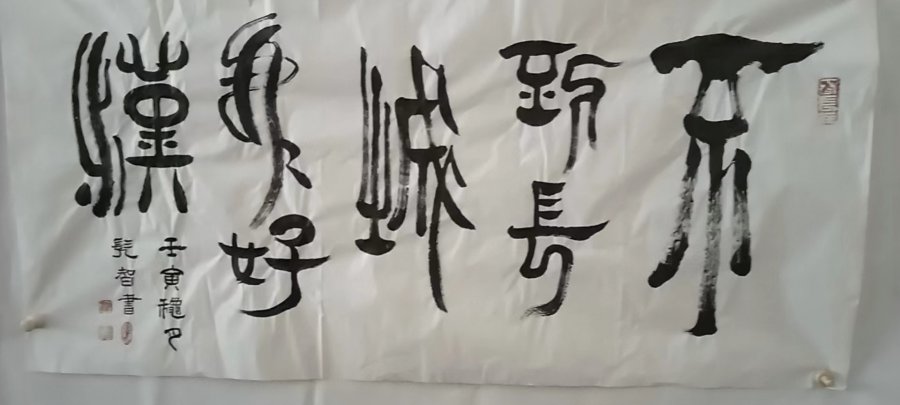 不
到長
城
非好
漢
壬寅穐月
髡智書